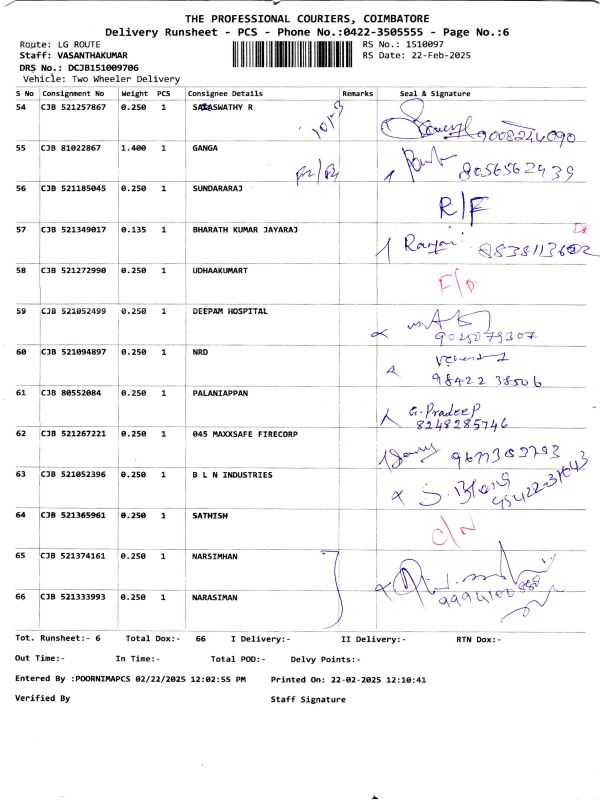 THE PROFESSIONAL COURIERS, COIMBATORE
Delivery Runsheet - PCS - Phone No.:0422-3505555 - Page No.:6
Route: LG ROUTE RS No.: 1510097
Staff: VASANTHAKUMAR RS Date: 22-Feb-2025
DRS No.: DCJB151009706
Vehicle: Two Wheeler Delivery
S No Consignment No Weight PCS Consignee Details Remarks Seal & Signature
54 CJB 521257867 0.250 1 SARASWATHY R
9008244090
55 CJB 81022867 1.400 1 GANGA
8056562439
56 CJB 521185045 0.250 1 SUNDARARAJ
R/F
57 CJB 521349017 0.135 1 BHARATH KUMAR JAYARAJ
58 CJB 521272990 0.250 1 UDHAAKUMART
59 CJB 521052499 0.250 1 DEEPAM HOSPITAL
9025079307
60 CJB 521094897 0.250 1 NRD
98422 38506
61 CJB 80552084 0.250 1 PALANIAPPAN
G.Pradeep
8248285746
62 CJB 521267221 0.250 1 045 MAXXSAFE FIRECORP
63 CJB 521052396 0.250 1 B L N INDUSTRIES
64 CJB 521365961 0.250 1 SATHISH
C/N
65 CJB 521374161 0.250 1 NARSIMHAN
66 CJB 521333993 0.250 1 NARASIMAN
Tot. Runsheet:- 6 Total Dox:- 66 I Delivery:- II Delivery:- RTN Dox:-
Out Time:- In Time:- Total POD:- Delvy Points:-
Entered By :POORNIMAPCS 02/22/2025 12:02:55 PM Printed On: 22-02-2025 12:10:41
Verified By Staff Signature